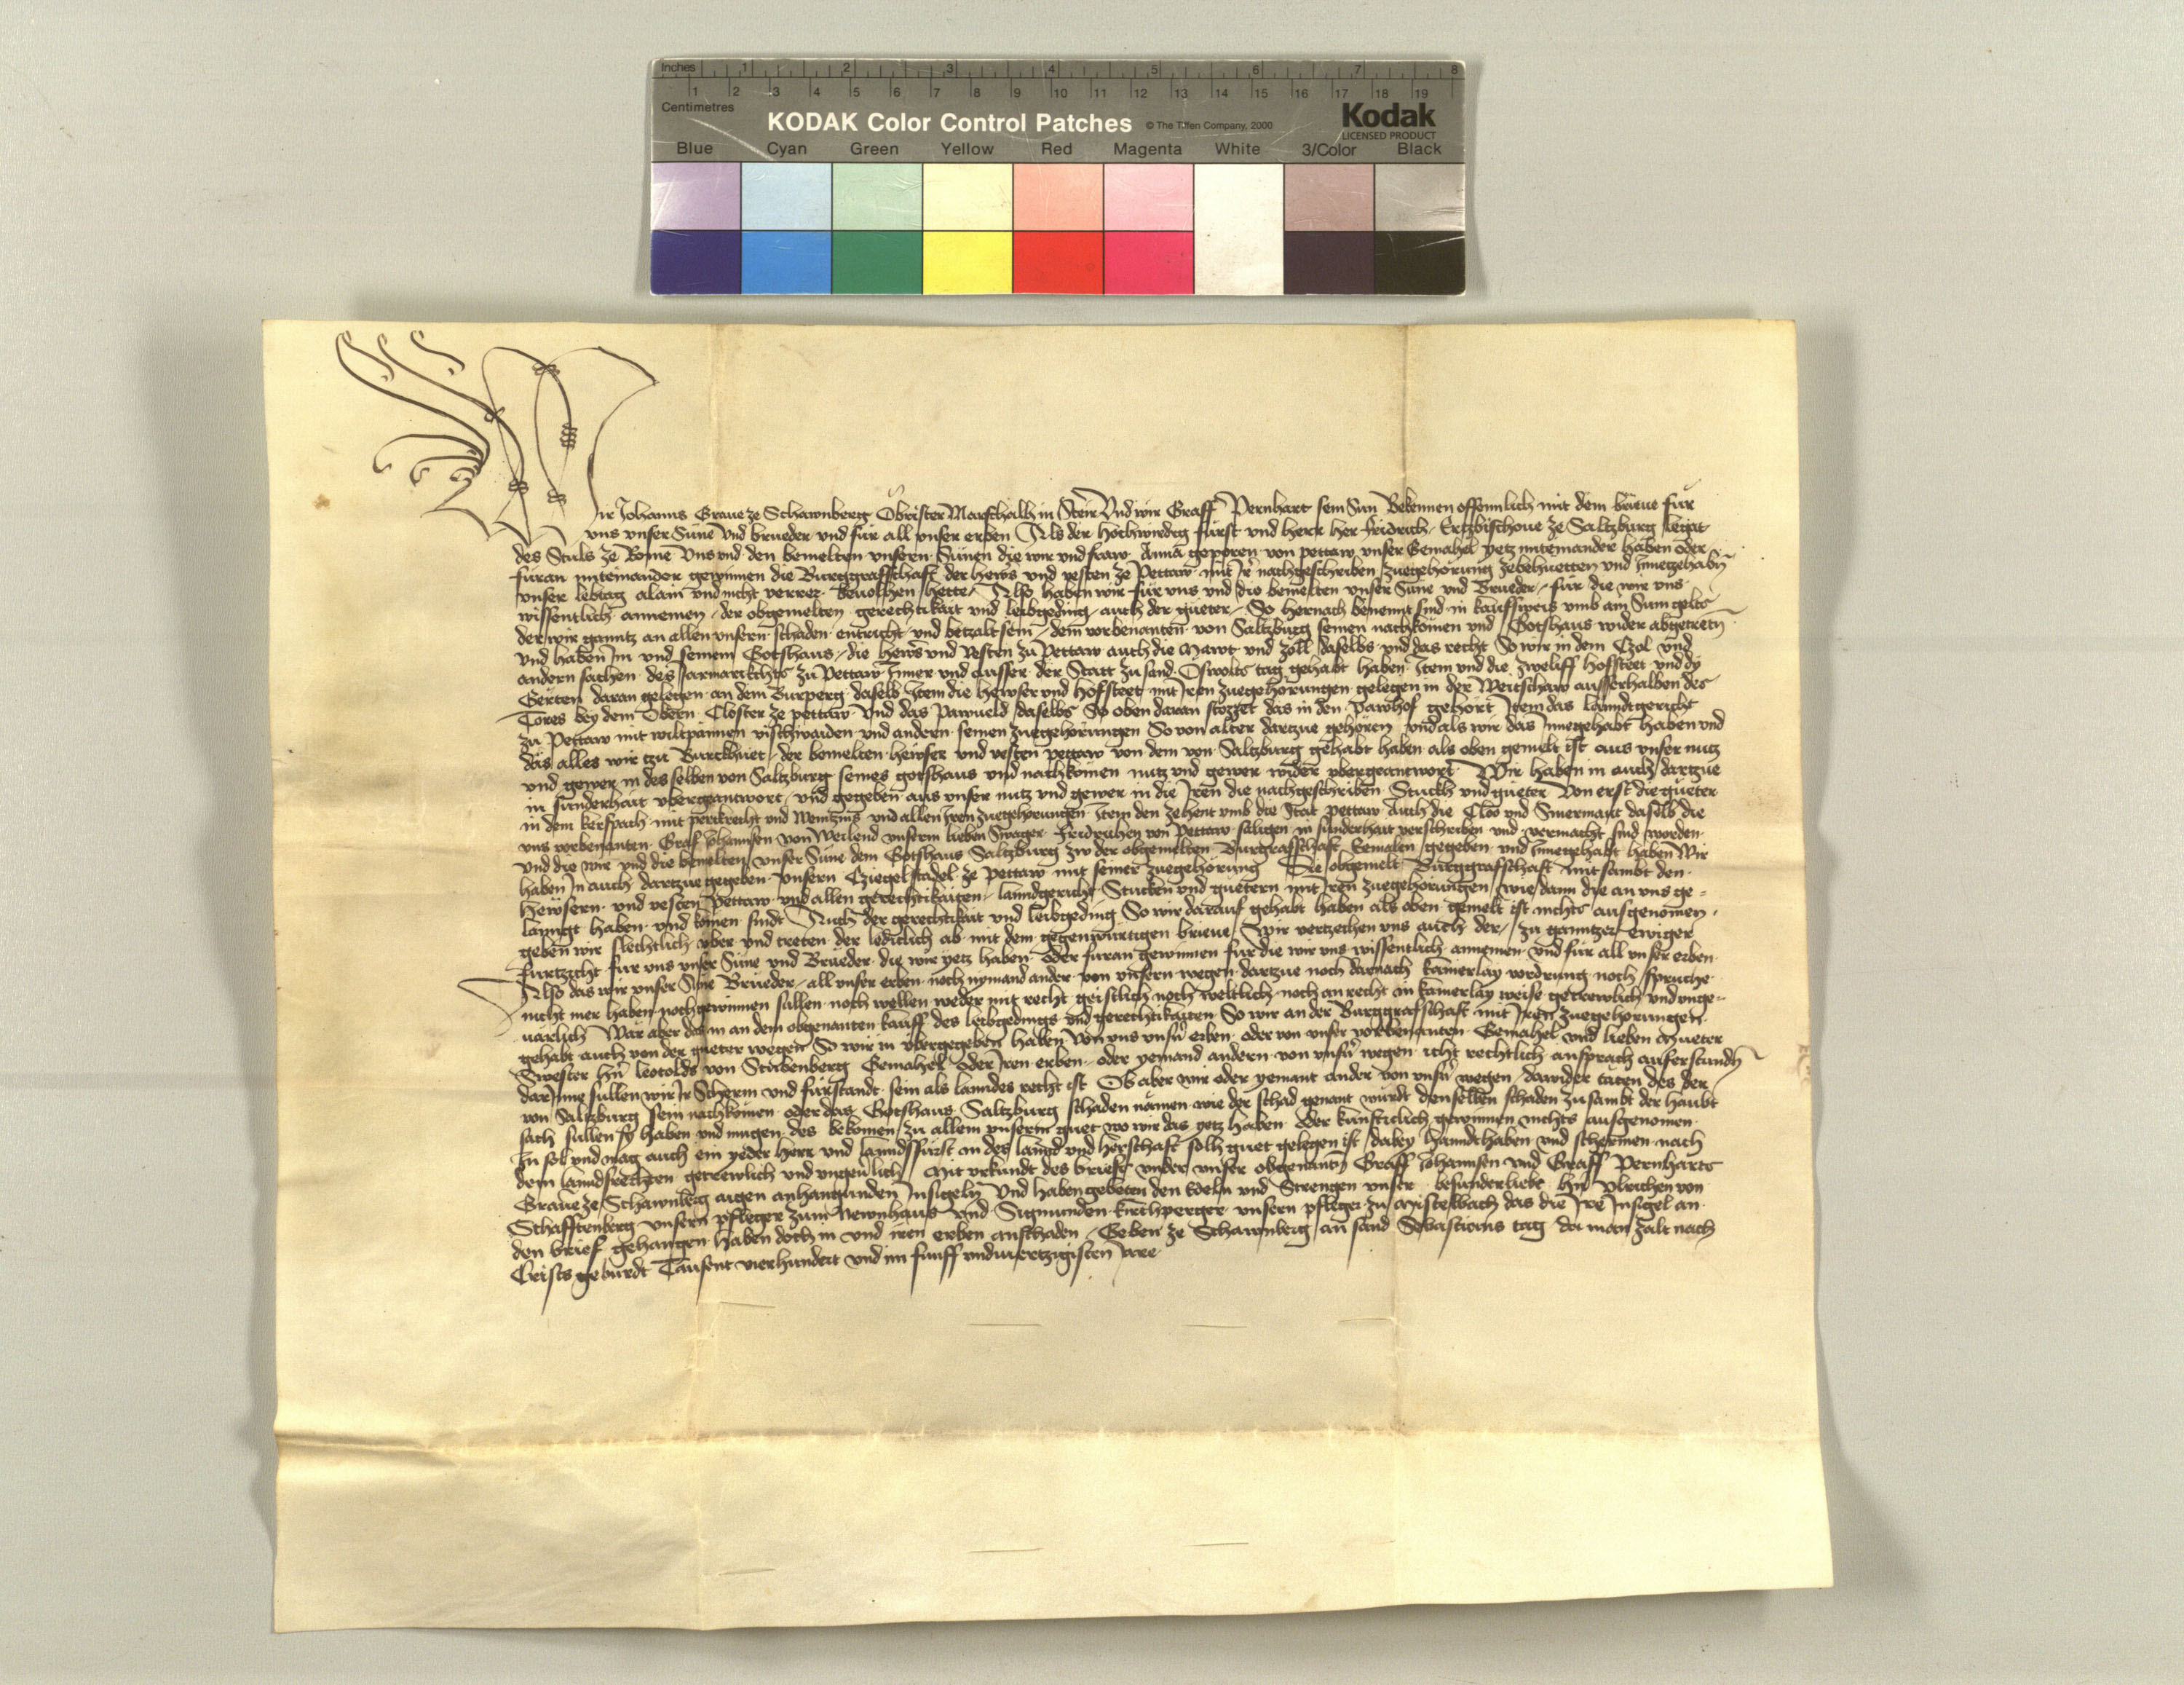 Inches 1 2 3 4 5 6 7 8
1 2 3 4 5 6 7 8 9 10 11 12 13 14 15 16 17 18 19
Centimetres
KODAK Color Control Patches © The Tiffen Company, 2000 Kodak
LICENSED PRODUCT
Blue Cyan Green Yellow Red Magenta White 3/Color Black
Wir Johanns Graue ze Schawnberg Obrister Marschalh in Steir Vnd wir Graff Pernhart sein Sun Bekennen offennlich mit dem brieue für
vns vnser Süne vnd brueder vnd für all vnser erben Als der hochwirdig fürst vnd herr her Fridrich Ertzbischoue ze Saltzburg legat
des Stuls ze Rome vns vnd den bemelten vnsern Sünen die wir vnd fraw Anna geporen von pettaw vnser Gemahel yetz miteinander haben oder
füran miteinander gewinnen die Burggrafschaft der hews vnd vesten ze Pettaw mit Ir nachgeschriben zuegehörung zebehuetten vnd Innezehabn
vnser lebtag alain vnd nicht verrer beuolhen hette Also haben wir für vns vnd die bemelten vnser Süne vnd Brueder für die wir vns
wissentlich annemen der obgemelten gerechtikait vnd leibgeding auch der gueter So hernach benennt sind in kauffsweis vmb ain Sum gelts
der wir ganntz an allen vnsern schaden entricht vnd betzalt sein dem vorbenanten von Saltzburg seinen nachkömen vnd Gotshaus wider abgetretn
vnd haben Im vnd seinem Gotshaus die hews vnd Vesten zu Pettaw auch die Mawt vnd zöll daselbs vnd das recht So wir in dem Czol vnd
andern sachen des Jarmarckhts zu Pettaw Inner vnd ausser der Statt zu sand Oswolts tag gehabt haben Item vnd die zweliff hofsteet vnd dy
Gerten daran gelegen an dem Burperg daselb Item die hewser vnd hofsteet mit Iren zuegehörungen gelegen in der Weitschaw ausserhalben des
Tores bey dem Obern Closter ze pettaw vnd das pawueld daselbs So oben daran stozzet das in den pawhof gehört Item das lanndtgericht
zu Pettaw mit wiltpannen vischwaiden vnd andern seinen zuegehörungen So von alter dartzue gehören vnd als wir das Innegehabt haben vnd
das alles wir tzu Burckhuet der bemelten hewser vnd vesten pettaw von dem von Saltzburg gehabt haben als oben gemelt ist aus vnser nutz
vnd gewer in des selben von Saltzburg seines gotshaus vnd nachkömen nutz vnd gewer wider vbergeantwort Wir haben in auch dartzue
in sunderhait vbergeantwort vnd gegeben aus vnser nutz vnd gewer in die Iren die nachgeschriben Stuckh vnd gueter Von erst die gueter
in dem kerspach mit perckrecht vnd Weintzins vnd allen Iren zuegehorungen Item den zehent vmb die Stat pettaw Auch die Cloo vnd Smermawt daselb die
vns vorbenanten Graf Johannsen von Weilend vnserm lieben Swager Fridrichen von Pettaw säligen in sunderhait verschriben vnd vermacht sind worden
vnd die wir vnd die bemelten vnser Süne dem Gotshaus Saltzburg zw der obgemelten Burgrafschaft kemalen gegeben vnd Innegehabt haben Wir
haben In auch dartzue gegeben vnsern Cziegelstadel ze Pettaw mit seiner zuegehörung Die obgemelt Burggrafschaft mitsambt den
Hewsern vnd vesten Pettaw vnd allen gerechtikaiten lanndgericht Stucken vnd guetern mit Iren zuegehörungen wie dann die an vns ge=
lanngt haben vnd kömen sindt Auch der gerechtikait vnd leibgeding So wir darauf gehabt haben als oben gemelt ist nichts ausgenomen
geben wir slechtlich über vnd treten der lediclich ab mit dem gegenwürtigen brieue Wir vertzeihen vns auch der zu ganntzer ewiger
Furtzicht für vns vnser Süne vnd Brüeder die wir yetz haben oder füran gewinnen für die wir vns wissentlich annemen vnd für all vnser erben
Also das wir vnser Süne Brüeder all vnser erben noch nymand ander von vnsern wegen dartzue noch darnach kainerlay vordrung noch spruche
nicht mer haben noch gewinnen sullen noch wellen weder mit recht geistlich noch weltlich noch an recht in kainerlay weise getrewlich vnd vnge=
uärlich Wär aber das in an dem obgenanten kauff des leibgedings vnd gerechtikaiten So wir an der Burggrafschaft mit Iren zuegehorungen
gehabt auch von der gueter wegen So wir in vbergegeben haben Von vns vnsern erben oder von vnser vorbenanten Gemahel vnd lieben Mueter
Swester hern leotolds von Stubenberg Gemahel oder Iren erben oder yemand andern von vnsern wegen icht rechtlich ansprach auferstundn
darInne sullen wir Ir Scherm vnd fürstandt sein als lanndes recht ist Ob aber wir oder yemant ander von vnsern wegen dawider täten des der
von Saltzburg sein nachkömen oder das Gotshaus Saltzburg schaden nämen wie der schad genant wurdt denselben schaden zu sambt der haubt
sach sullen sy haben vnd mugen des bekömen zu allem vnserm guet wo wir das yetz haben oder kunfticlich gewinnen nichts ausgenomen
In sol vnd mag auch ein yeder herr vnd lanndsfürst in des lannd vnd herschaft solh guet gelegen ist dabey hanndthaben vnd schermen nach
dem lanndsrechten getrewlich vnd vngeuerlich Mit vrkundt des briefs vnder vnser obgenanten Graff Johannsen vnd Graff Pernharts
Graue ze Schawnberg aigen anhangunden Insigeln Vnd haben gebeten den Edeln vnd Strengen vnser besunderlieb hern Vlrichen von
Schafftenberg vnsern pfleger zum Newnhaus vnd Sigmunden Kirchperger vnsern pfleger zu Mistelbach das die Ire Insigel an
den brief gehangen haben doch in vnd iren erben anschaden Geben ze Schawnberg an sand Sebastians tag da man zalt nach
Crists geburdt Tausent vierhundert vnd im funff vnduiertzigisten Jare